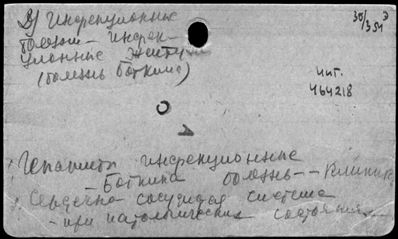 2) Инфекционные
болезни - инфек-
ционные желтухи
(болезнь Боткина)
30/351 Э
инг.
464218
Гепатиты инфекционные
- Боткина болезнь -- Клиника
Сердечно сосудистая система
- при патологических состояниях